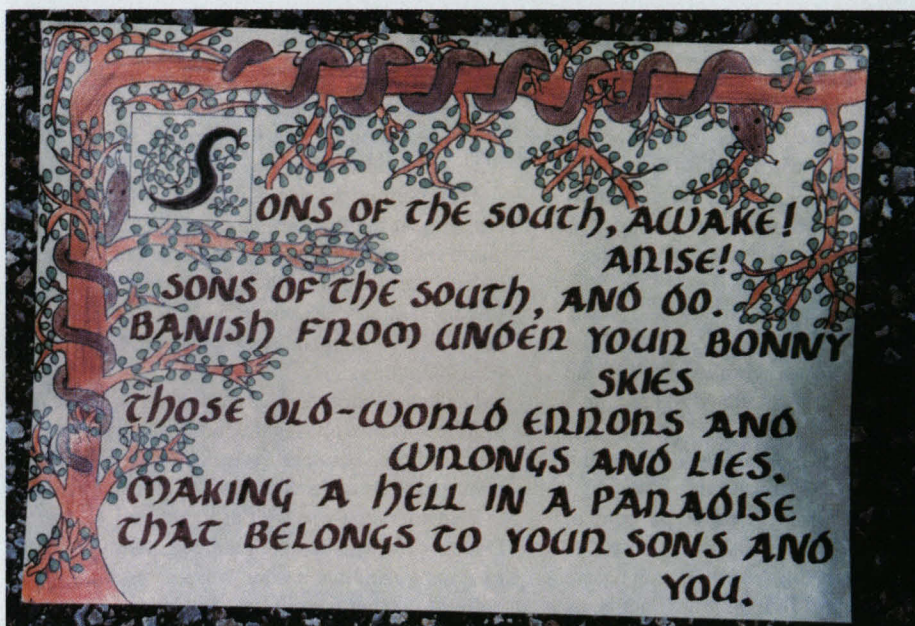 SONS OF THE SOUTH, AWAKE!
ARISE!
SONS OF THE SOUTH, AND DO.
BANISH FROM UNDER YOUR BONNY
SKIES
THOSE OLD-WORLD ERRORS AND
WRONGS AND LIES.
MAKING A HELL IN A PARADISE
THAT BELONGS TO YOUR SONS AND
YOU.